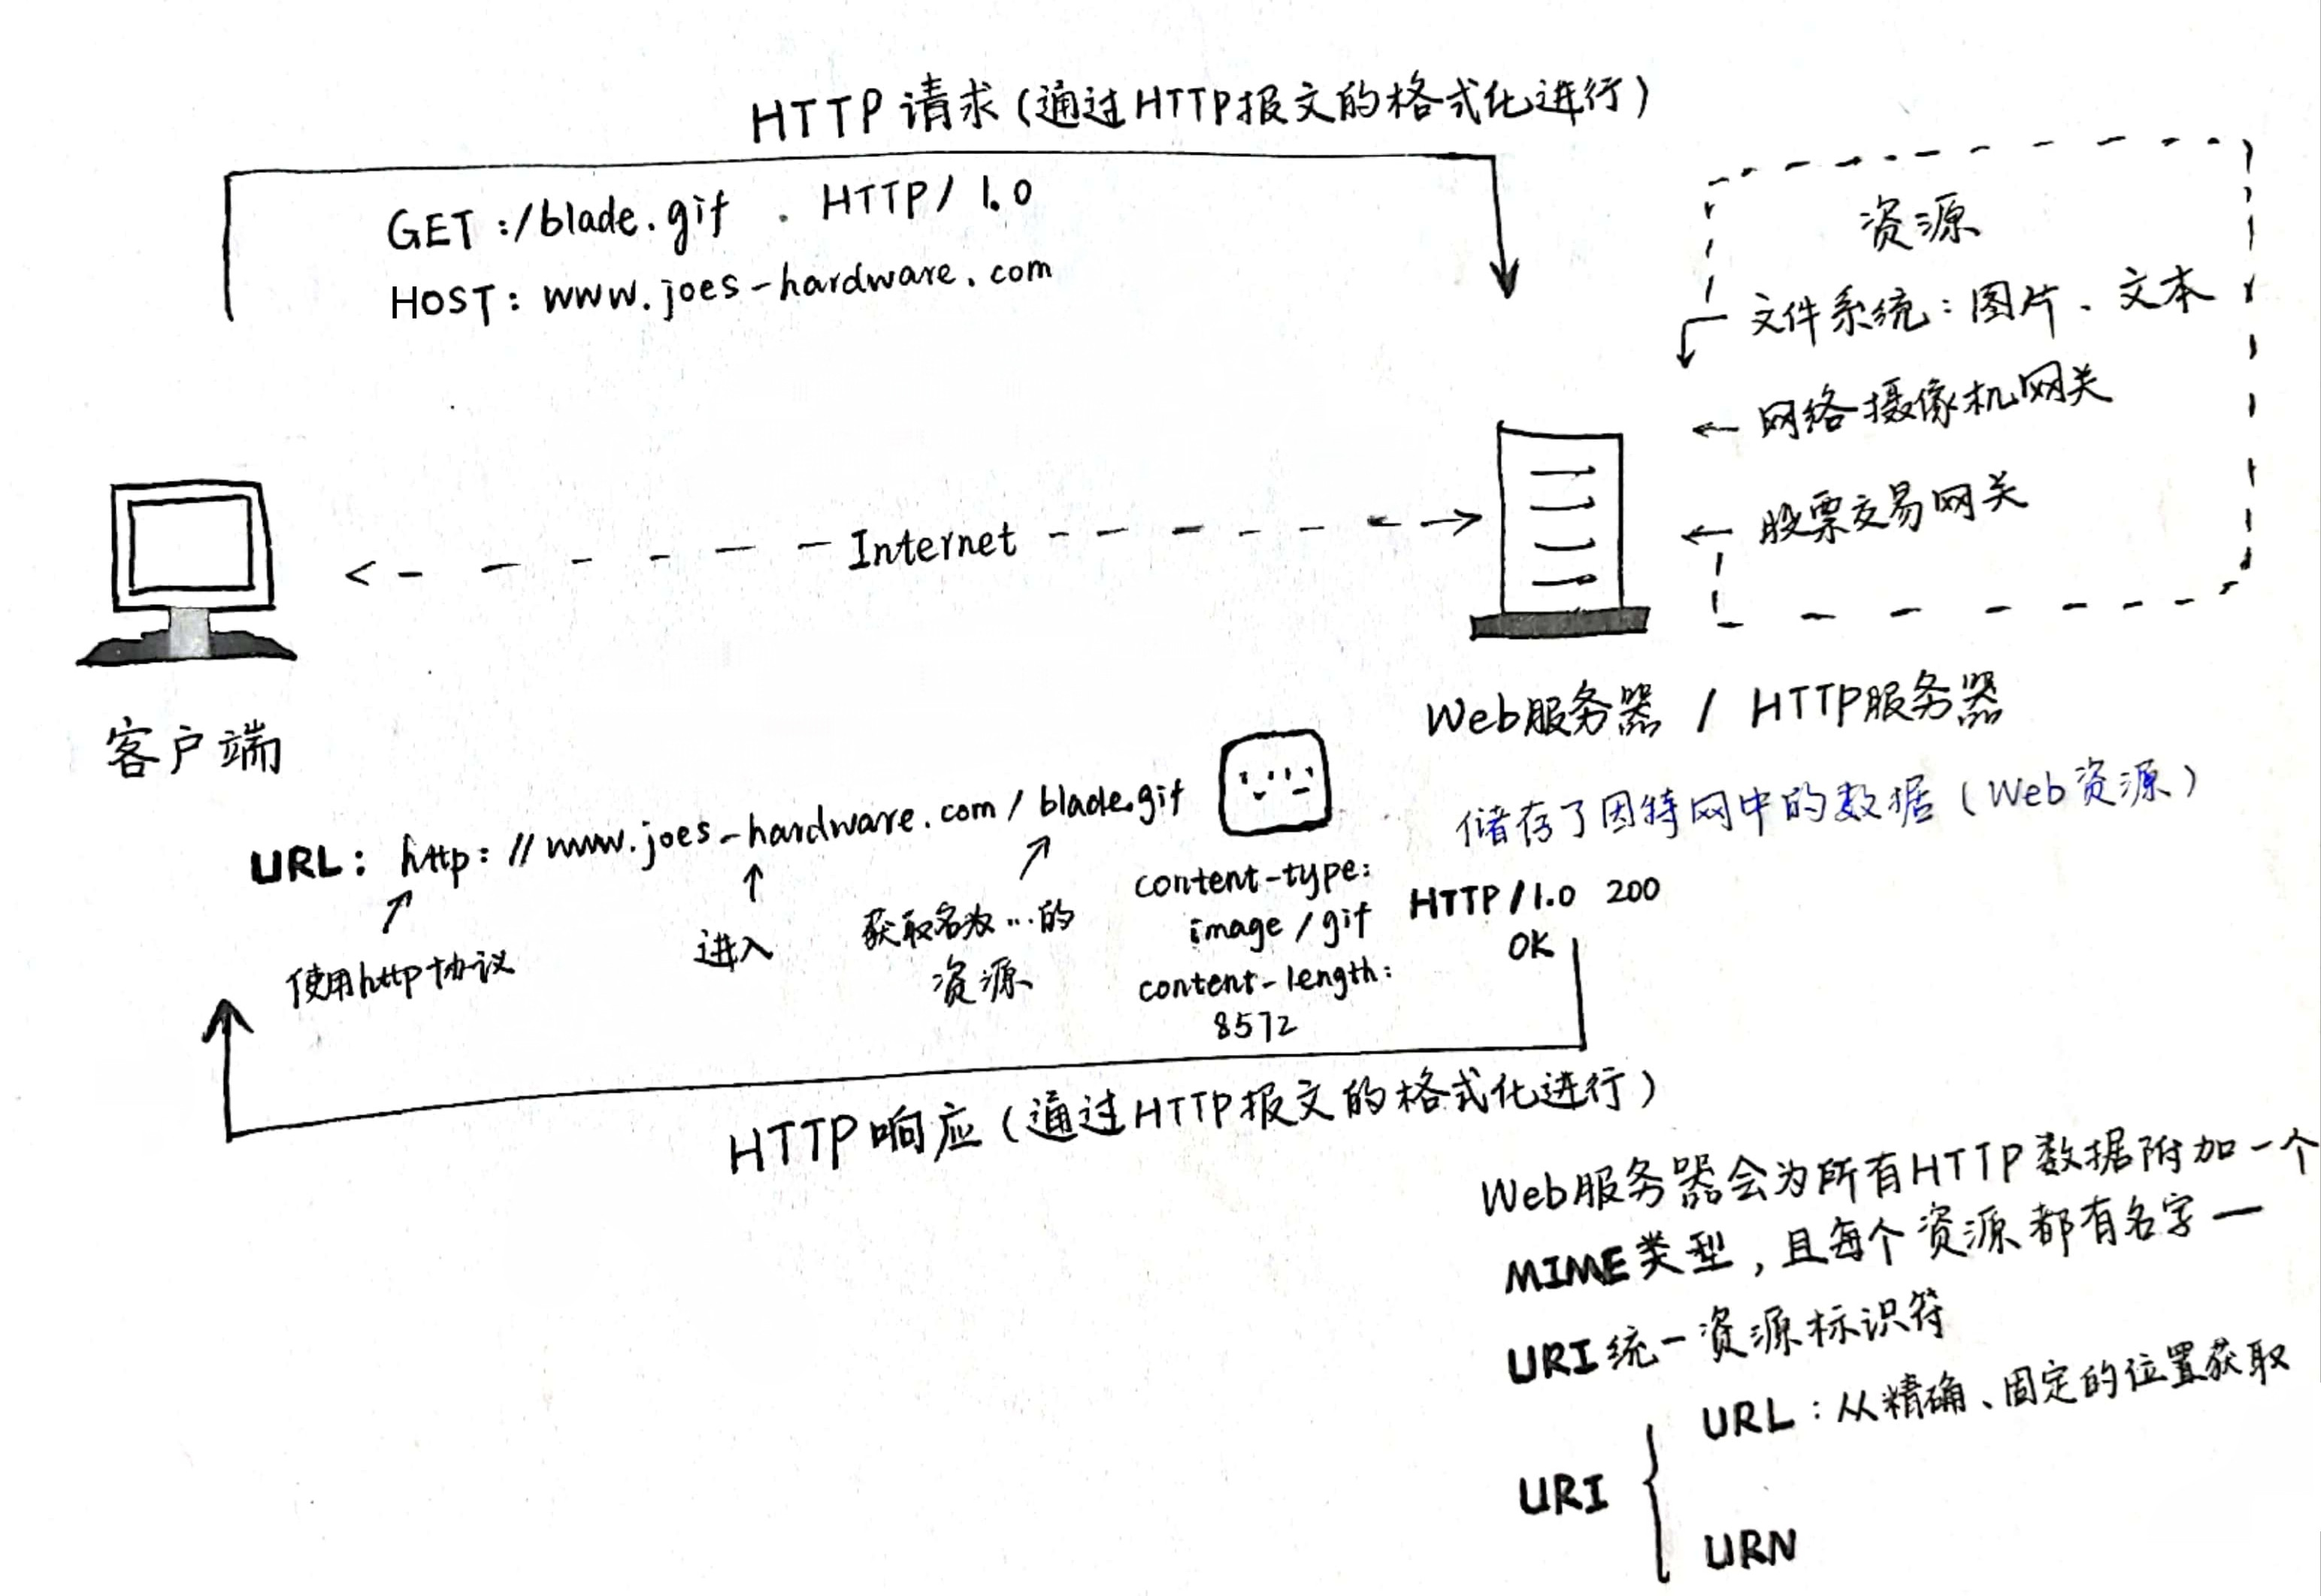 HTTP 请求(通过HTTP报文的格式化进行)
GET :/blade.gif . HTTP/ 1.0
HOST: www.joes-hardware.com
资源
文件系统:图片、文本
网络摄像机网关
股票交易网关
Internet
客户端
Web服务器 / HTTP服务器
储存了因特网中的数据(Web资源)
URL: http://www.joes-hardware.com/blade.gif
使用http协议
进入
获取名为...的
资源
content-type:
image/gif
content-length:
8572
HTTP/1.0 200
OK
HTTP 响应(通过HTTP报文的格式化进行)
Web服务器会为所有HTTP数据附加一个
MIME类型,且每个资源都有名字一
URI统一资源标识符
URI
URL:从精确、固定的位置获取
URN